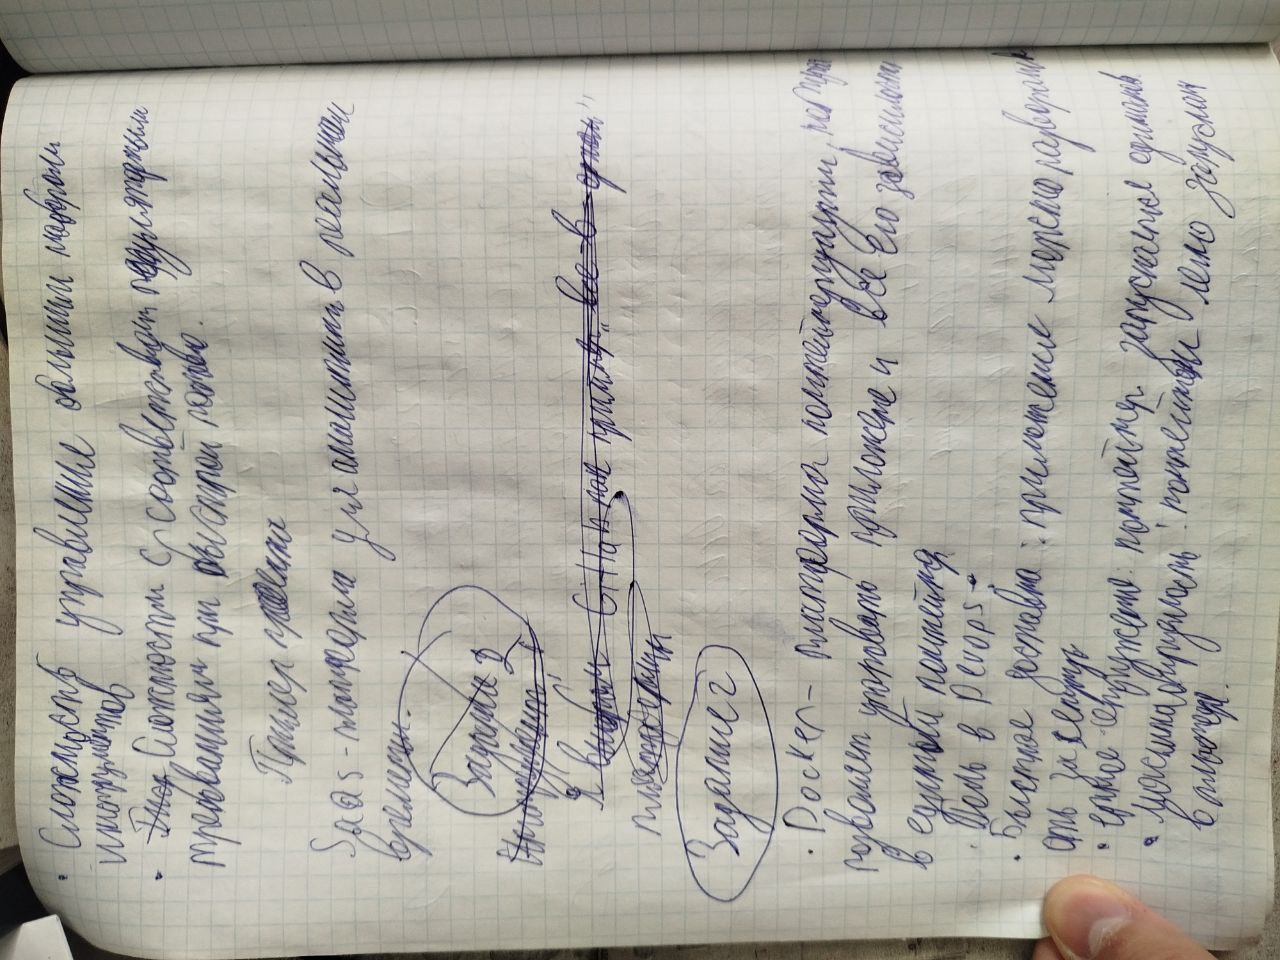 • Сложность управление большим набором
инструментов
• Сложности с соответствием регулярным
требованиям при быстрой потоке.
Пример
SaaS - платформа для аналитики в реальном
времени.
Задание 2
GitHub как пример "все в одном"
Задание 2
• Docker - платформа контейнеризации, которая
позволяет упаковать приложение и все его зависимости
в единый контейнер
• Роль в DevOps →
• Быстрое доставка: приложение можно развернуть
за секунду
• окружение: контейнер запускается одинаково
• Масштабируемость: контейнеры легко запускать
в